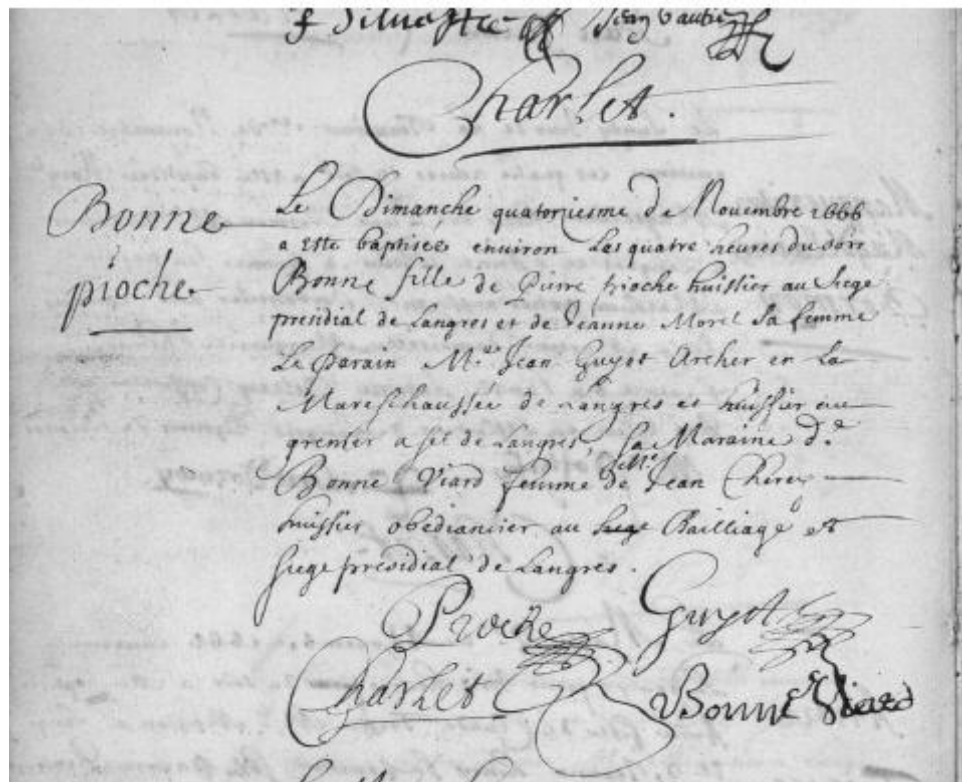 f Silvestre Jean Vautier
Charlet.
Bonne
pioche
Le Dimanche quatorziesme de Novembre 1666
a este baptisée environ Les quatre heures du soir
Bonne fille de Pierre pioche huissier au siege
presidial de Langres et de Jeanne Morel sa femme
Le parain M.re Jean Guyot Archer en La
Mareschaussee de Langres et huissier au
grenier a sel de Langres, La Maraine d.e
Bonne Viard femme de M.re Jean
huissier obediancier au siege Bailliage et
siege presidial de Langres.
Pioche Guyot
Charlet Bonne Viard